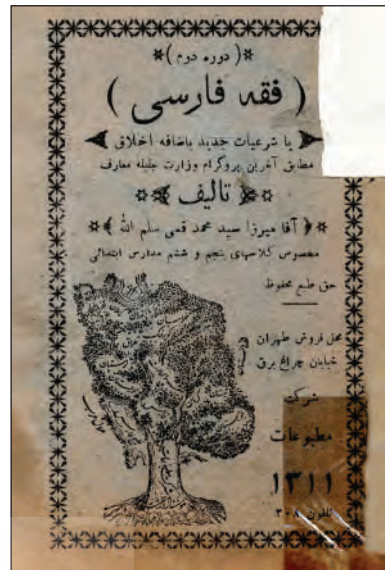 (دوره دوم)
(فقه فارسی)
یا شرعیات جدید باضافه اخلاق
مطابق آخرین پروگرام وزارت جلیله معارف
تالیف
آقا میرزا سید محمد قمی سلم الله
مخصوص کلاسهای پنجم و ششم مدارس ابتدائی
حق طبع محفوظ
محل فروش طهران
خیابان چراغ برق
شرکت
مطبوعات
۱۳۱۱
تلفون